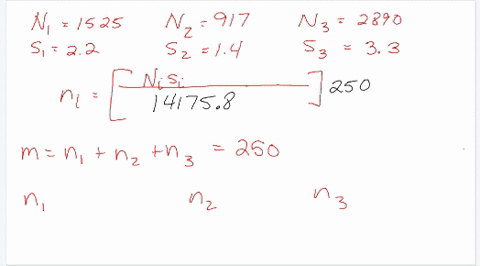 N₁ = 1525 N₂ = 917 N₃ = 2890
S₁ = 2.2 S₂ = 1.4 S₃ = 3.3
nᵢ = [NᵢSᵢ / 14175.8] 250
m = n₁ + n₂ + n₃ = 250
n₁ n₂ n₃